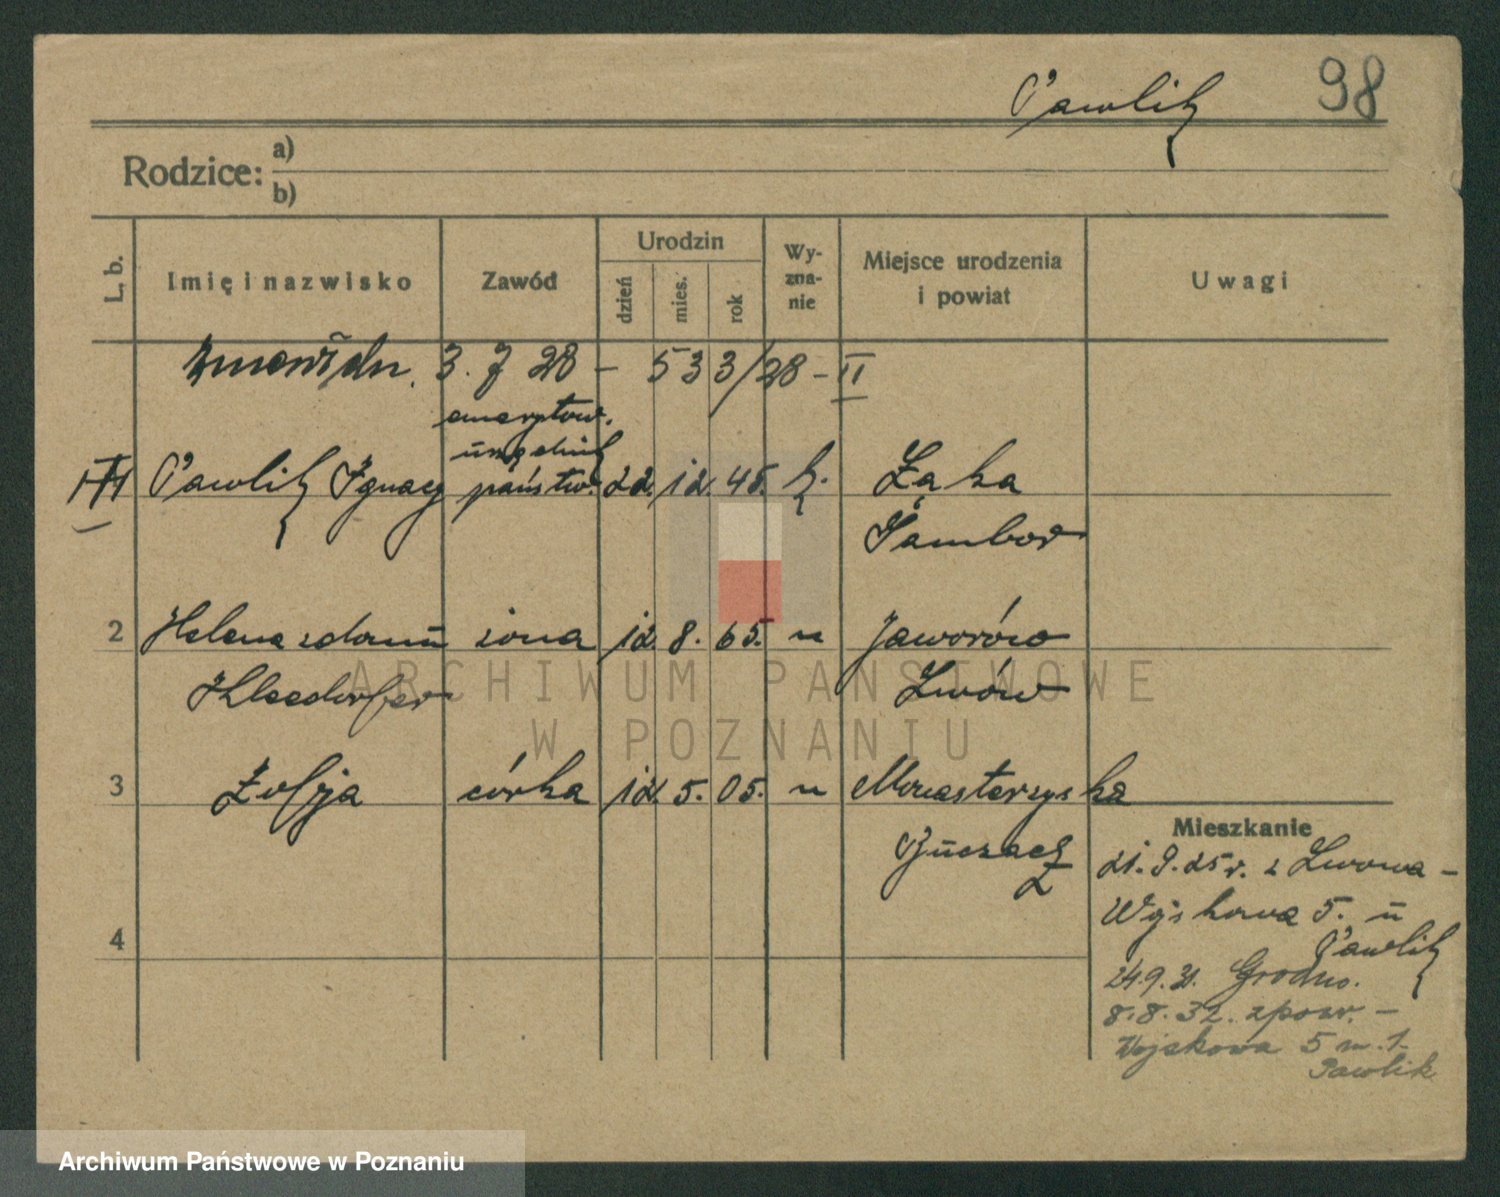 98
Pawlik
Rodzice: a)
b)
L. b.
Imię i nazwisko
Zawód
Urodzin
dzień
mies.
rok
Wy-
zna-
nie
Miejsce urodzenia
i powiat
Uwagi
3. 7 28 – 533/28 – II
emerytow.
urzędnik
Pawlik Ignacy państw. 22. 12. 45. k. Łąka
Sambor
2 Helena z domu żona 12. 8. 65. " Jaworów
Kleedorfer Lwów
3 Zofja córka 12. 5. 05. " Monasterzyska
Buczacz
4
Mieszkanie
21.9.25 r. z Lwowa –
Wojskowa 5. u
Pawlik
24.9.31. Grodno.
8.8.32. zpowr. –
Wojskowa 5 m. 1.
Pawlik
ARCHIWUM PAŃSTWOWE
W POZNANIU
Archiwum Państwowe w Poznaniu